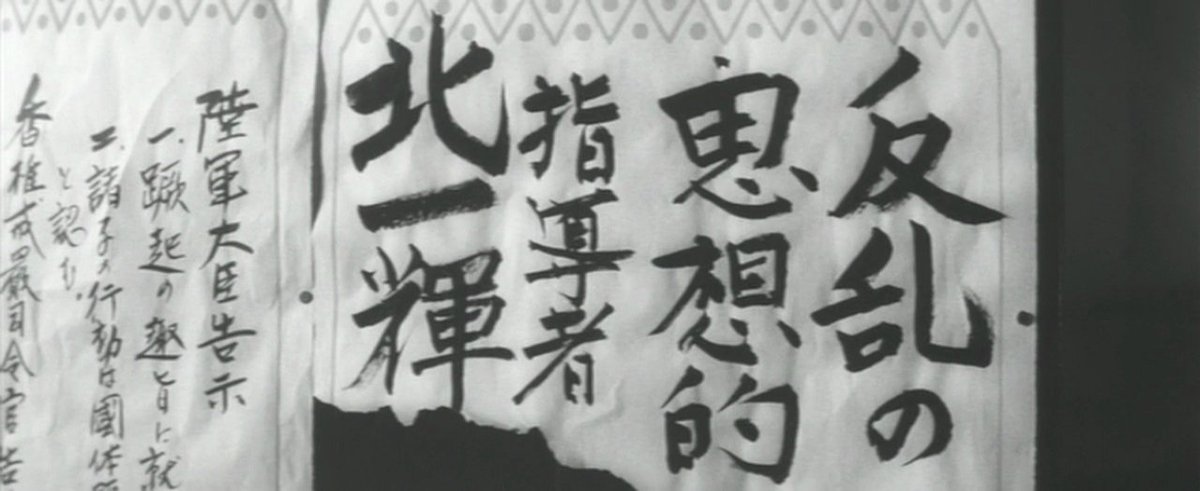 反乱の
思想的
指導者
北一輝
陸軍大臣告示
一、蹶起の趣旨に就
二、諸子の行動は國体顕
と認む。
香椎戒嚴司令官告